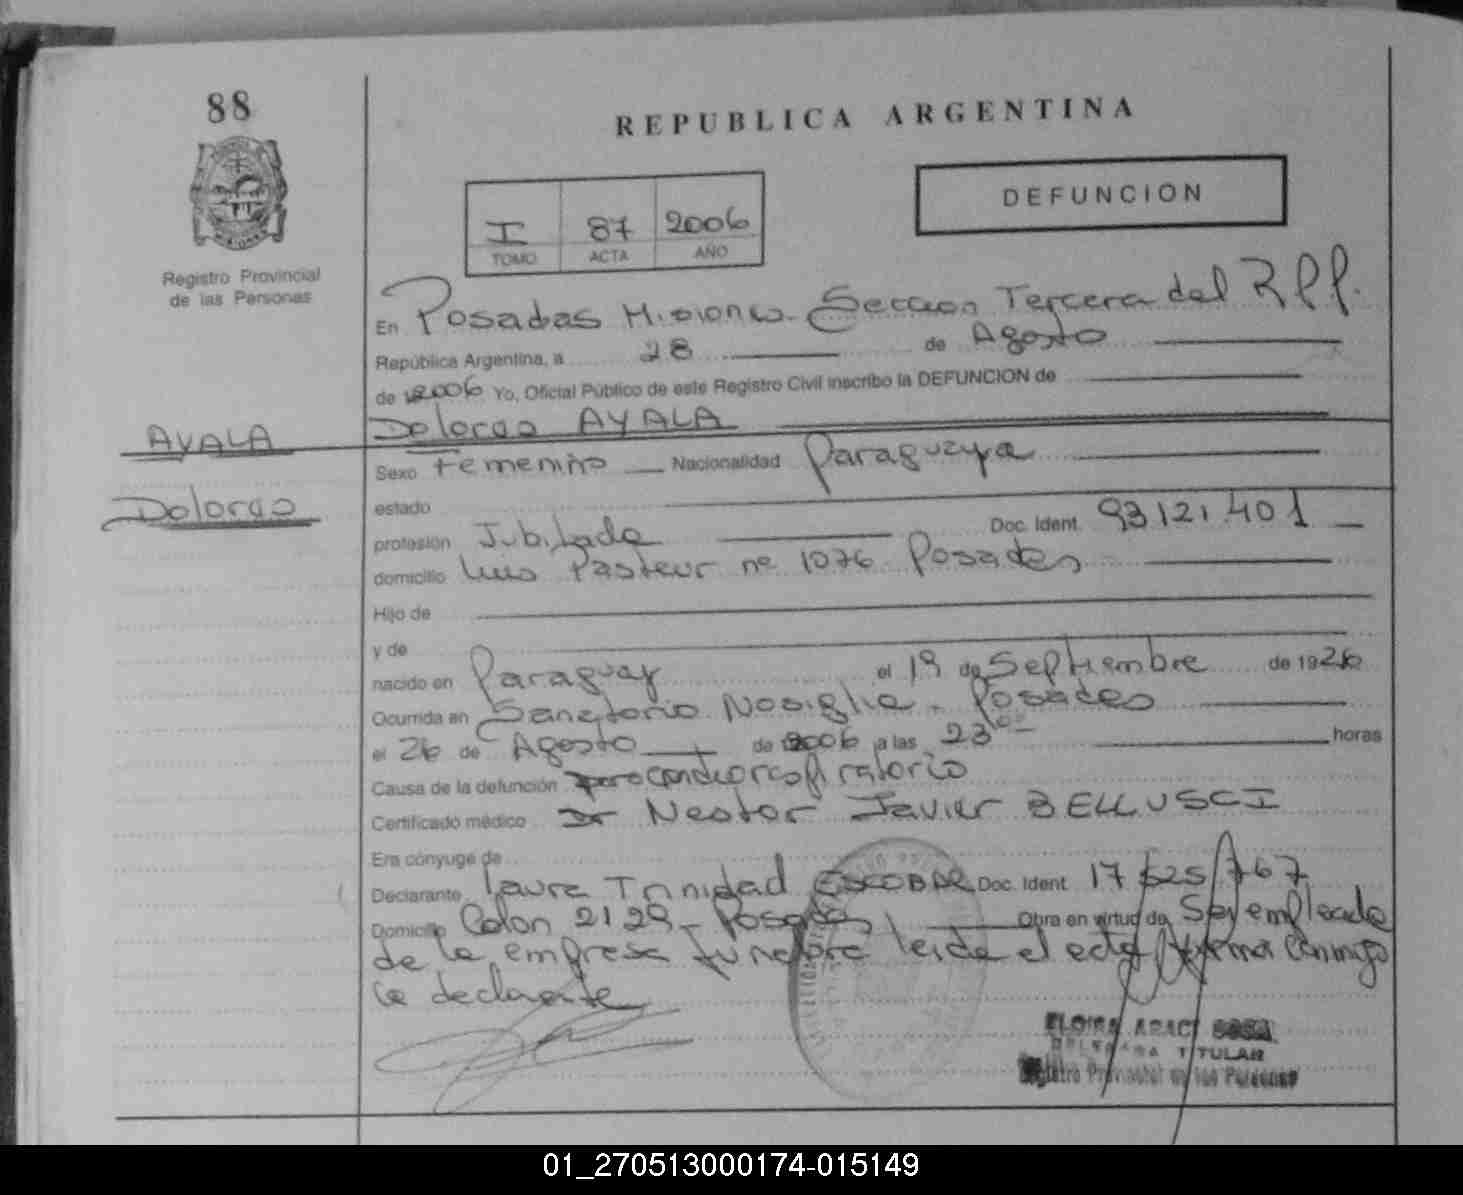 88
REPUBLICA ARGENTINA
DEFUNCION
I 87 2006
TOMO ACTA AÑO
Registro Provincial
de las Personas
En Posadas Misiones Seccion Tercera del R.P.P.
República Argentina, a 28 de Agosto
de 2006 Yo, Oficial Público de este Registro Civil inscribo la DEFUNCION de
AYALA
Dolores AYALA
Sexo Femenino Nacionalidad Paraguaya
Dolores
estado
profesión Jubilada Doc. Ident. 93121.401
domicilio Luis Pasteur nº 1076 Posadas
Hijo de
y de
nacido en Paraguay el 19 de Septiembre de 1926
Ocurrida en Sanatorio Nosiglia - Posadas
el 26 de Agosto de 2006 a las 23⁰⁰ horas
Causa de la defunción paro cardiorespiratorio
Certificado médico Dr Nestor Javier BELLUSCI
Era cónyuge de
Declarante Laura Trinidad ESCOBAR Doc. Ident. 17/525/767
Domicilio Colon 2129 - Posadas Obra en virtud de Ser empleada
de la empresa funebre leida el acta firma conmigo
la declarante
TITULAR
Registro Provincial de las Personas
01_270513000174-015149